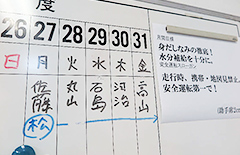 度
26 27 28 29 30 31
日 月 火 水 木 金
佐藤 丸山 石島 河治 高山
松
身だしなみの徹底!
水分補給を十分に。
安全運転スローガン
走行時、携帯・地図見禁止
安全運転第一で!